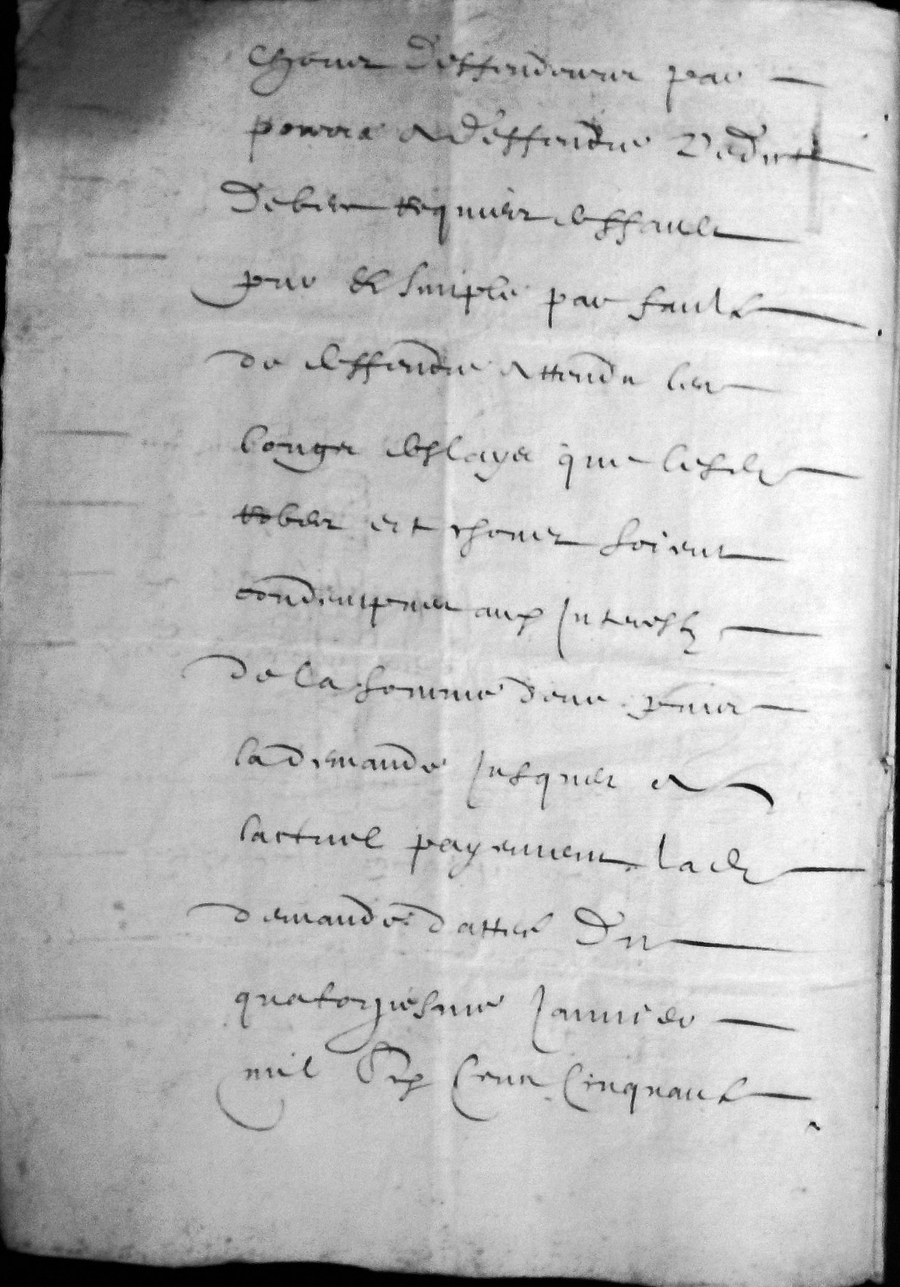 chouet deffendeurs par
pouvra a deffendre
requiert deffault
pur et simple par faulte
de deffendre attendu les
longs deslays que lesd
et chouet soient
condempnes aux Interestz
de la somme deue
la demande Jusques a
lactuel payement lad
demande dattee du
quatorziesme Janvier
mil Six Cent Cinquante